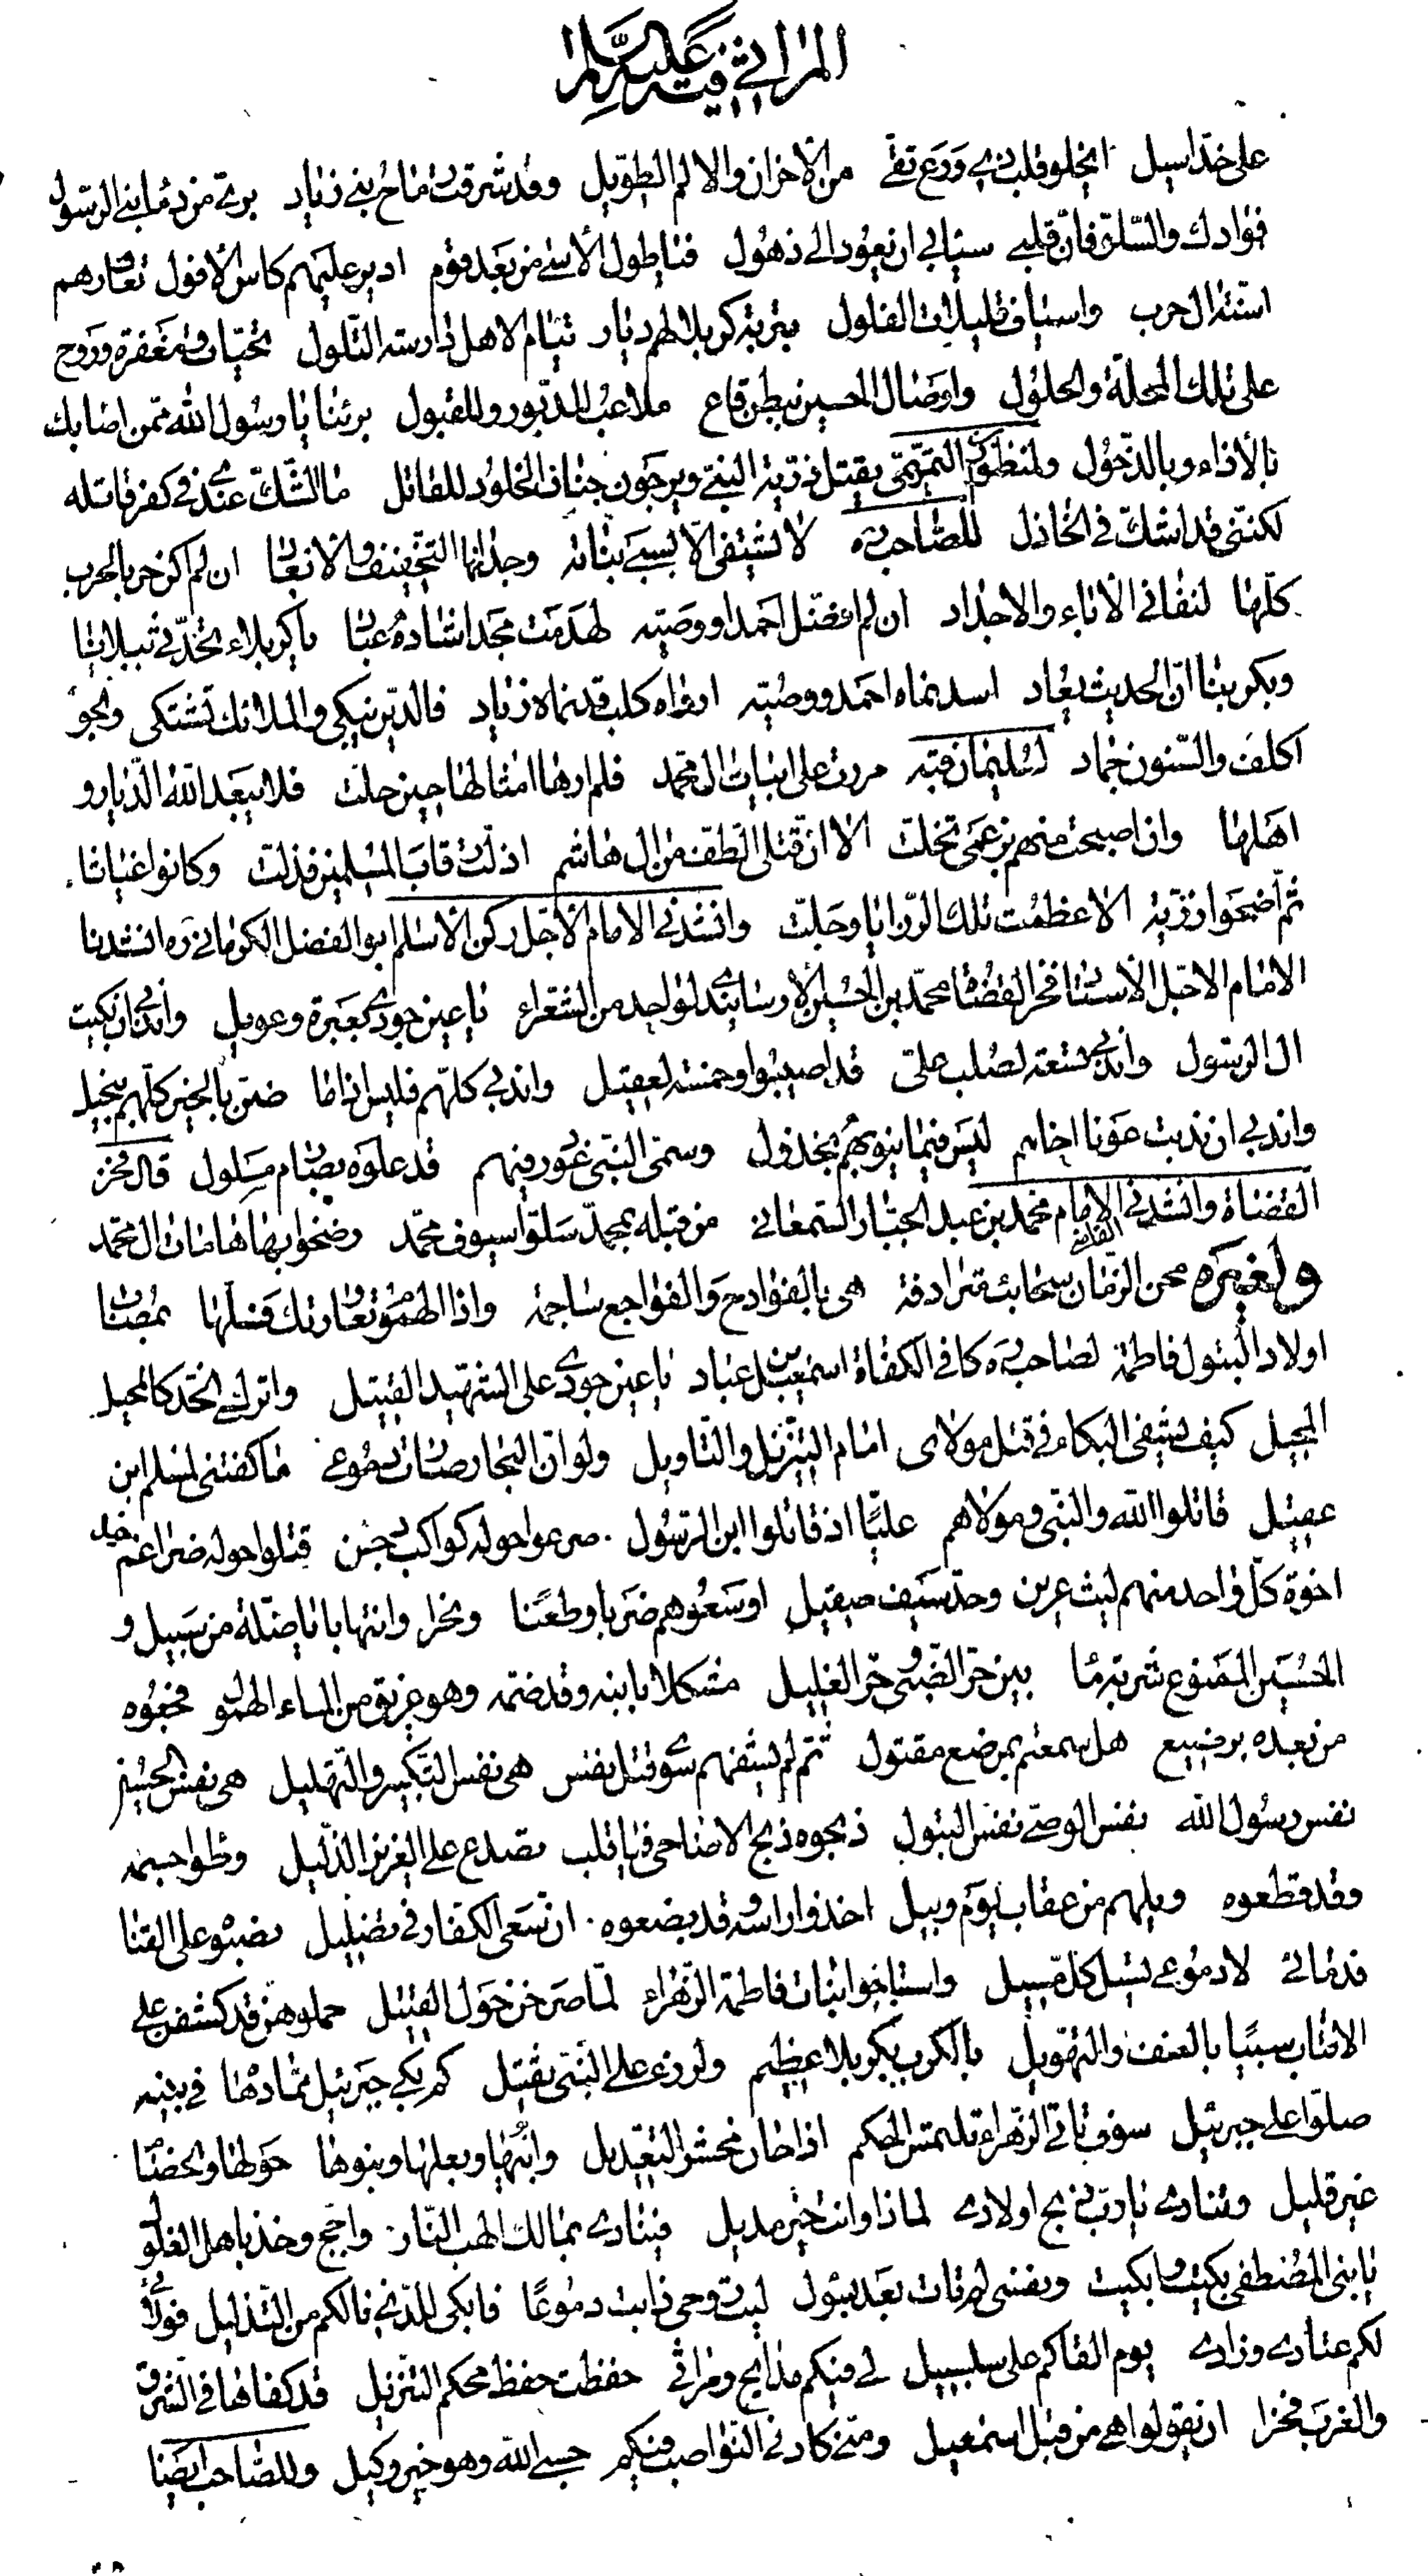 المراثي فيه عليه السلام
على خد اسيل ايخلو قلب ذي ورع تقي من الاحزان والالم الطويل وقد شرقت رماح بني زياد بري من دماء بني الرسول
فؤادك والسلو فان قلبي سيابي ان يعود الى ذهول فيا طول الاسى من بعد قوم ادير عليهم كاس الافول تعاورهم
اسنة ال حرب واسياف قليلات الفلول بتربة كربلا لهم ديار نيام الاهل دارسة الطلول تحيات ومغفرة وروح
على تلك المحلة والحلول واوصال الحسين ببطن قاع ملاعب للدبور وللقبول برئنا يا رسول الله ممن اصابك
بالاذاء وبالذحول ولمنظور النمري يقتل ذرية النبي ويرجون جنان الخلود للقاتل ما الشك عندي في كفر قاتله
لكنني قد اشك في الخاذل للصاحب ره لا تشتفي الا بسبي بناته وحداتها التخفيف والاتعاب ان لم اكن حربا لحرب
كلها لنفاني الاباء والاجداد ان لم افضل احمد او وصيه لهدمت مجدا شاده عباد يا كربلاء تحدثي ببلائنا
وبكربنا ان الحديث يعاد اسد نماه احمد ووصيه ارداه كلب قد نماه زياد فالدين يبكي والملائك تشتكي والجو
اكلف والسنون جماد لسليمان قتة مررت على ابيات ال محمد فلم ارها امثالها حين حلت فلا يبعد الله الديار و
اهلها وان اصبحت منهم بزعمي تخلت الا ان قتلى الطف من ال هاشم اذلت رقاب المسلمين فذلت وكانوا غياثا
ثم اضحوا رزية الا عظمت تلك الرزايا وجلت وانشدني الامام الاجل ركن الاسلام ابو الفضل الكرماني ره انشدنا
الامام الاجل الاستاد فخر القضاة محمد بن الحسين الارسابندي لواحد من الشعراء يا عين جودي بعبرة وعويل واندبي ان بكيت
ال الرسول واندبي تسعة لصلب علي قد اصيبوا وخمسة لعقيل واندبي كلهم فليس اذا ما ضن بالخير كلهم ببخيل
واندبي ان ندبت عونا اخاهم ليس فيما ينوبهم بخذول وسمي النبي غودر فيهم قد علوه بصارم مسلول قال فخر
القضاة وانشدني القاضي الامام محمد بن عبد الجبار السمعاني من قبله بمحمد سلوا سيوف محمد رضخوا بها هامات ال محمد
ولغيره محن الزمان سحائب مترادفة هي بالفوادح والفواجع ساجمة واذا الهموم تعاورتك فسلها بمصاب
اولاد البتول فاطمة لصاحب ره كافي الكفاة اسمعيل بن عباد يا عين جودي على الشهيد القتيل واتركي الخد كالمحيل
المحيل كيف يشفي البكاء في قتل مولاي امام التنزيل والتاويل ولو ان البحار صارت دموعي ما كفتني لمسلم ابن
عقيل قاتلوا الله والنبي ومولاهم عليا اذ قاتلوا ابن الرسول صرعوا حوله كواكب دجن قتلوا حوله ضراغم خيل
اخوة كل واحد منهم ليث عرين وحد سيف صقيل اوسعوهم ضربا وطعنا ونحرا وانتهابا يا ضلة من سبيل و
الحسين الممنوع شربة ماء بين حر الضبى وحر الغليل مثكلا بابنه وقد ضمه وهو غريق من الماء الهمول فجعوه
من بعده برضيع هل سمعتم بمرضع مقتول ثم لم يشفهم سوى قتل نفس هي نفس التكبير والتهليل هي نفس الحسين
نفس رسول الله نفس الوصي نفس البتول ذبحوه ذبح الاضاحي فيا قلب تصدع على العزيز الذليل وطوا جسمه
وقد قطعوه ويلهم من عقاب يوم وبيل اخذوا راسه وقد بضعوه ان سعي الكفار في تضليل نصبوه على القنا
فدمائي لا دموعي تسيل كل مسيل واستباحوا بنات فاطمة الزهراء لما صرخن حول القتيل حملوهن قد كشفن على
الاقتاب سبيا بالعنف والتهويل يا لكرب بكربلا عظيم ولرزء على النبي ثقيل كم بكى جبرئيل مما دهاه في بنيه
صلوا على جبرئيل سوف تاتي الزهراء تلتمس الحكم اذا حان محشر التعديل وابوها وبعلها وبنوها حولها والخصام
غير قليل وتنادي يا رب ذبح اولادي لماذا وانت خير مديل فينادى بمالك الهب النار واجج وخذ باهل الغلول
يا بني المصطفى بكيت وابكيت ونفسي لم تات بعد بسول ليت روحي ذابت دموعا فابكي للذي نالكم من التذليل فولائي
لكم عتادي وزادي يوم القاكم على سلسبيل لي فيكم مدايح ومراثي حفظت حفظ محكم التنزيل قد كفاها في الشرق
والغرب فخرا ان يقولوا هي من قيل اسمعيل ومتى كادني النواصب فيكم حسبي الله وهو خير وكيل وللصاحب ايضا